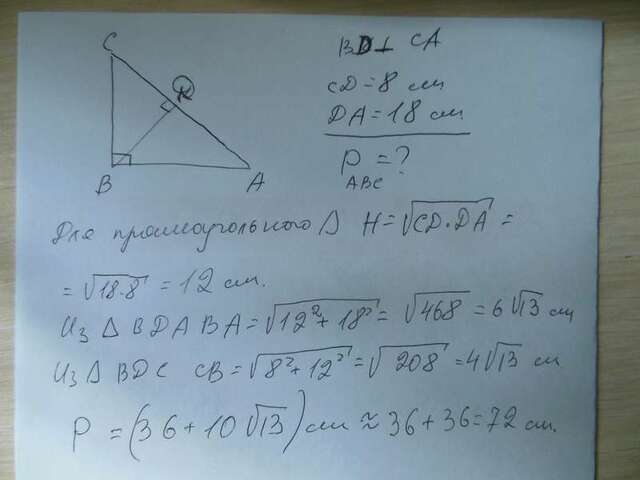 C
BD ⊥ CA
K
CD = 8 см
DA = 18 см
B A
P = ?
ABC
Для прямоугольного Δ H = √CD·DA =
= √18·8 = 12 см.
Из Δ BDA BA = √12² + 18² = √468 = 6√13 см
Из Δ BDC CB = √8² + 12² = √208 = 4√13 см
P = (36 + 10√13) см ≈ 36 + 36 = 72 см.